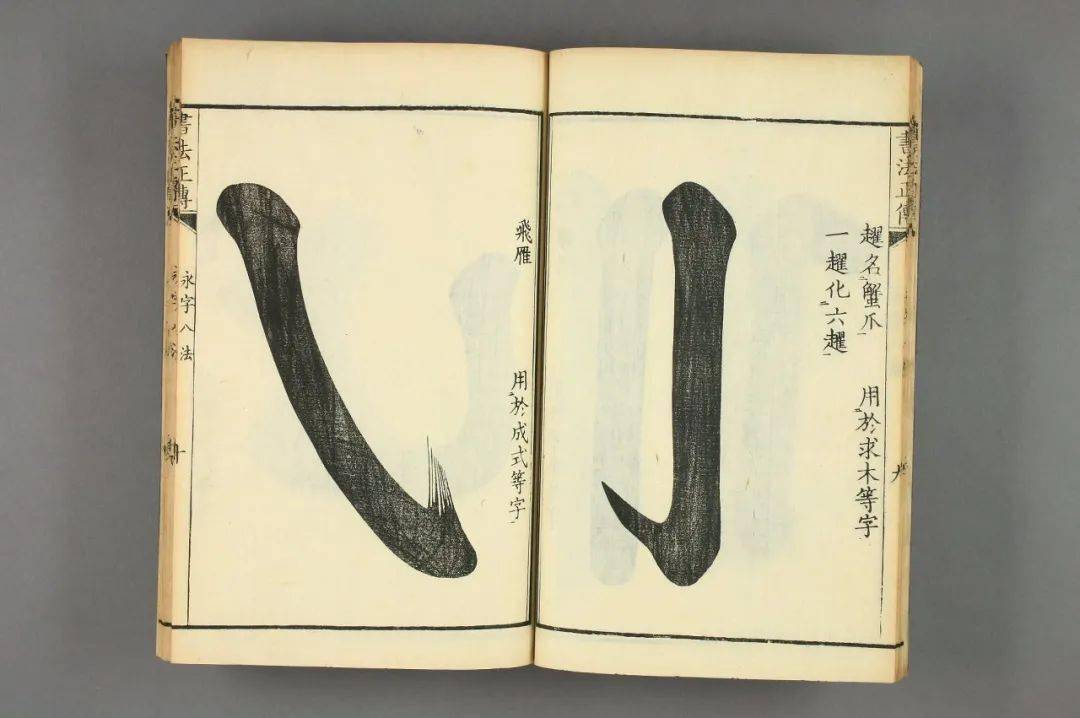 書法正傳
趯名蟹爪
一趯化六趯
用於求木等字
九
飛雁
用於成式等字
書法正傳
永字八法
十